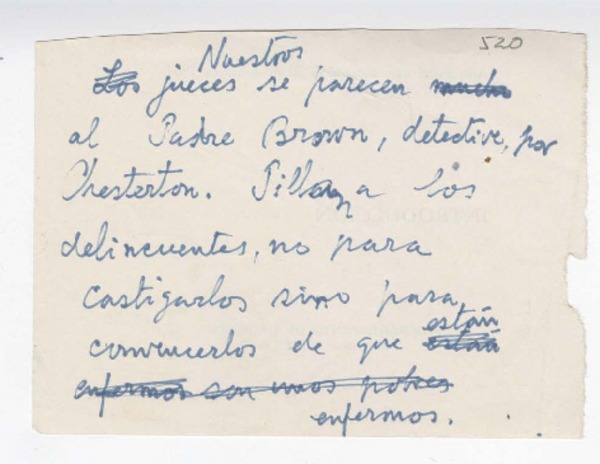 520
Nuestros
Los jueces se parecen mucho
al Padre Brown, detective, por
Chesterton. Pillan a los
delincuentes, no para
castigarlos sino para
convencerlos de que están
están
enfermos son unos pobres
enfermos.